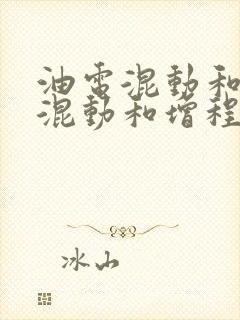 油电混動和
混動和增程
冰山